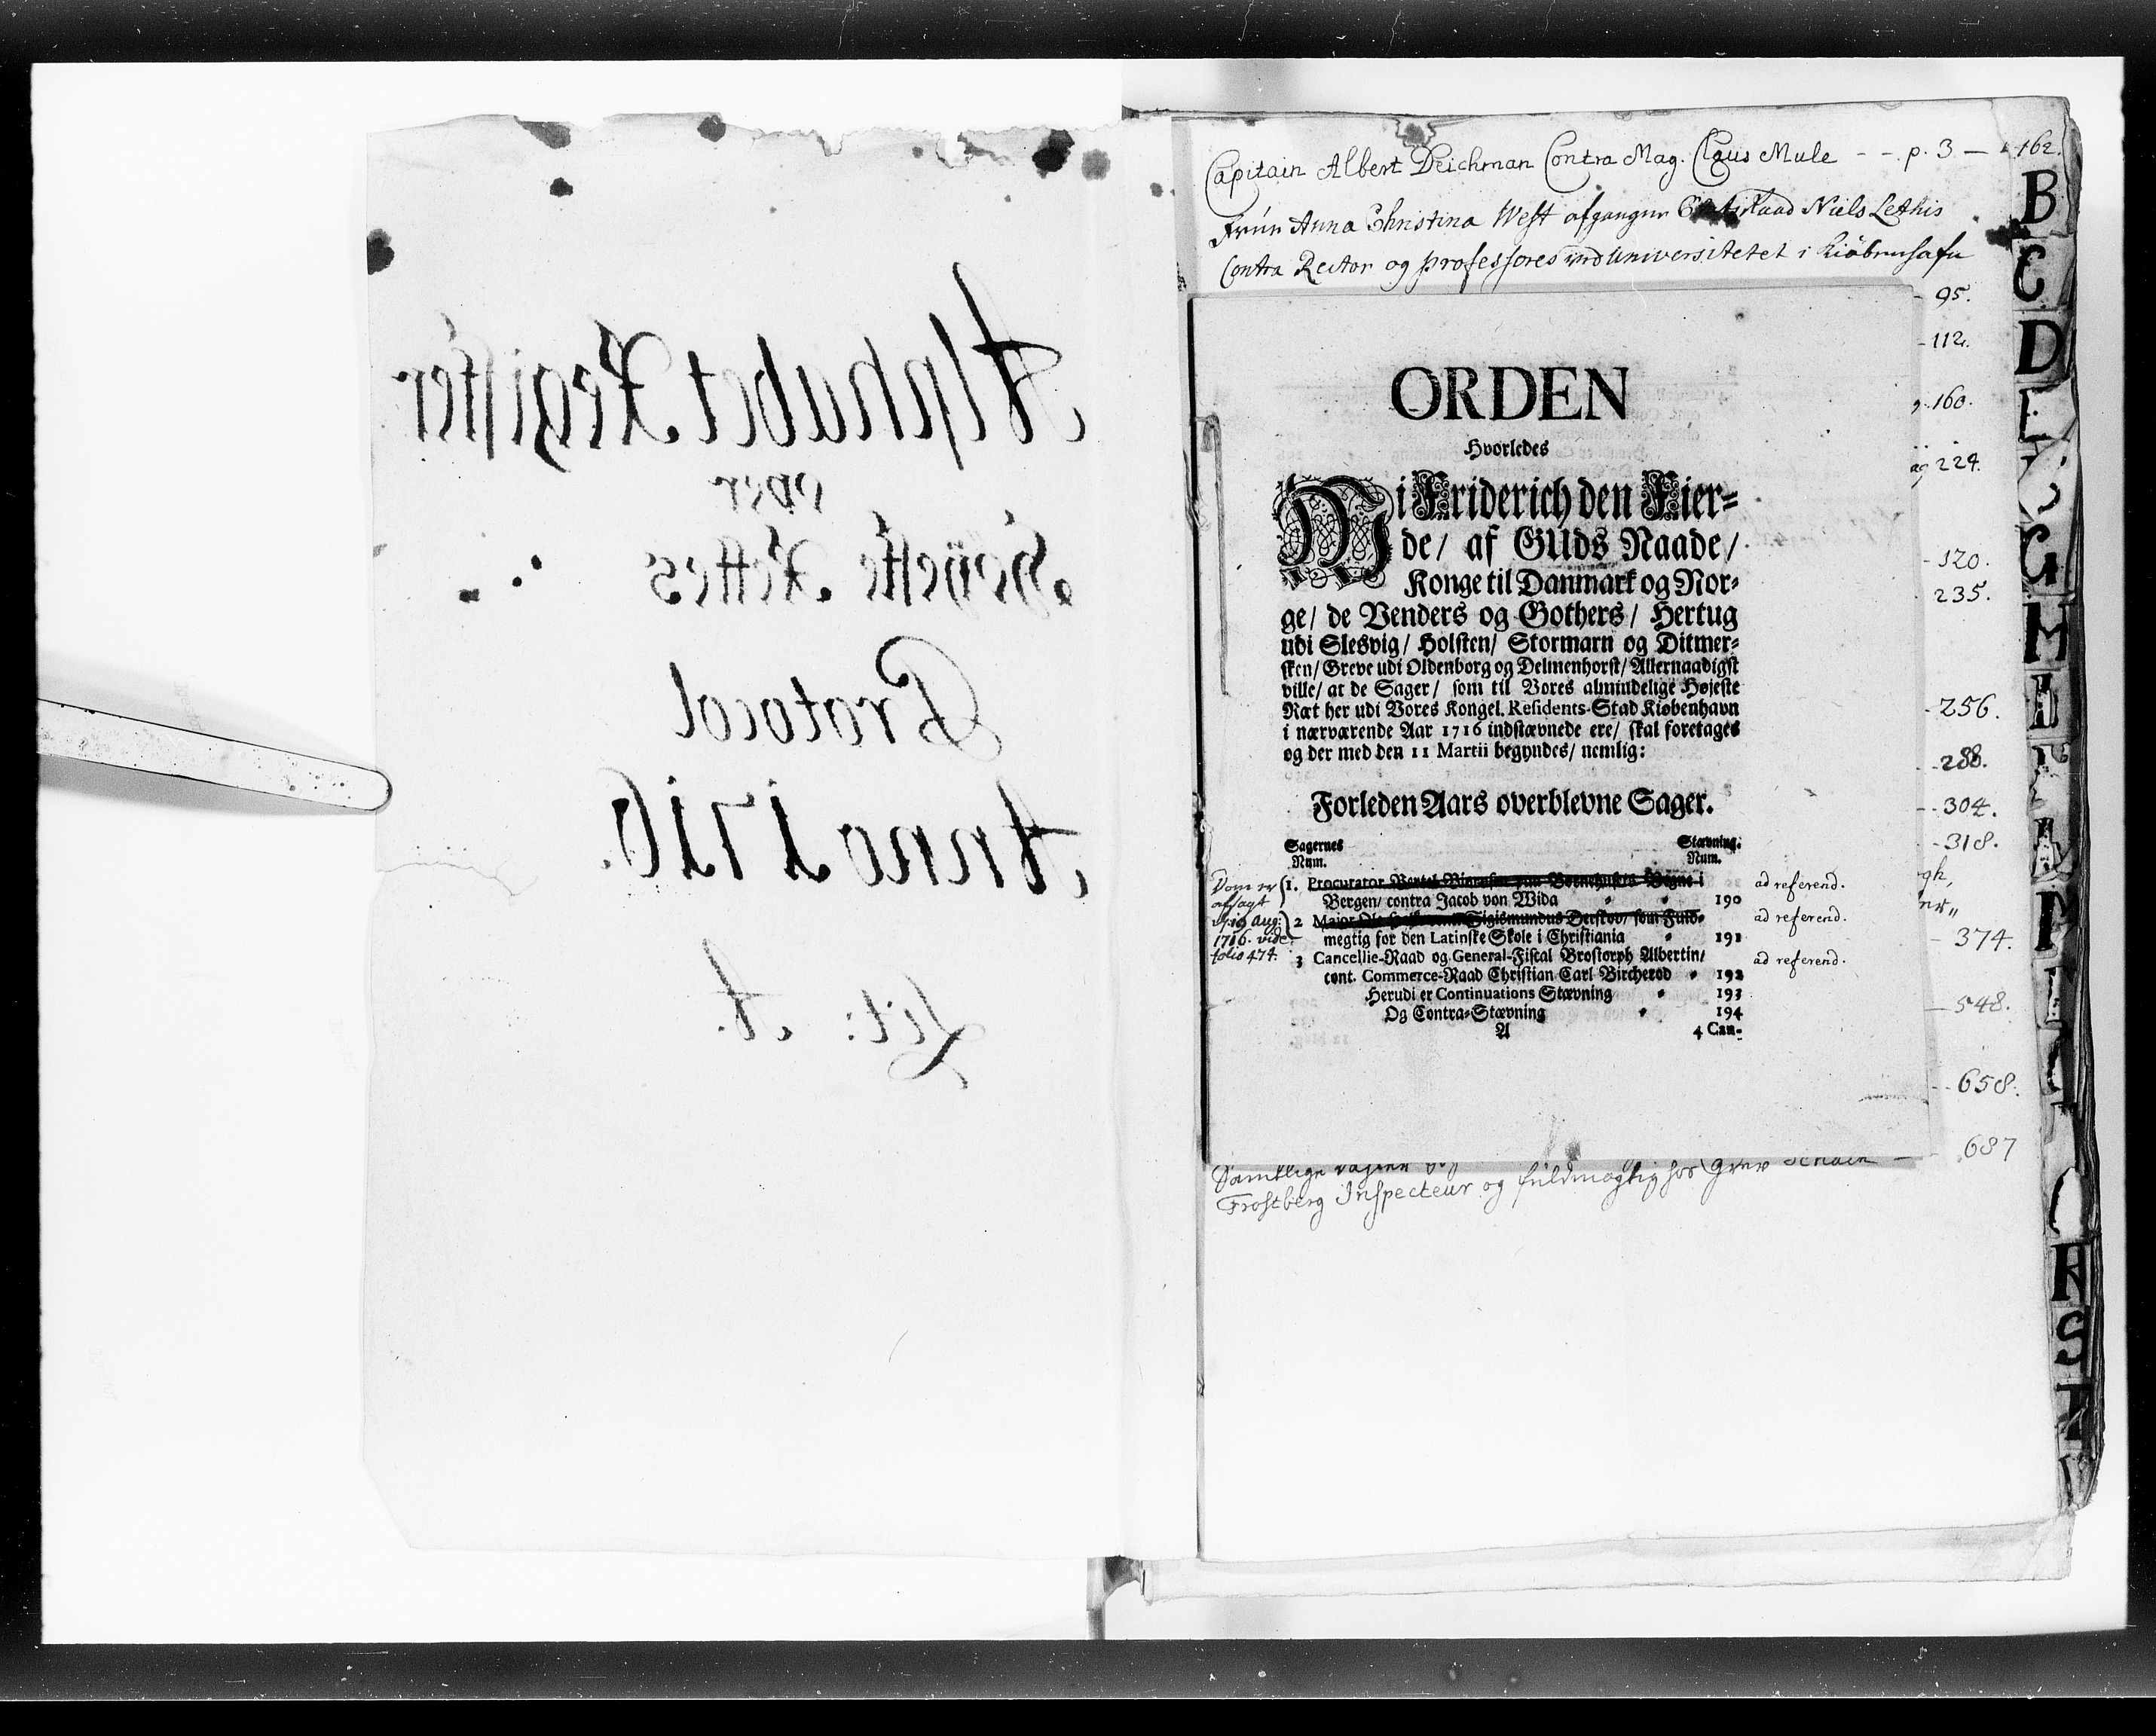 Alphabet Register
over
Høyeste Rettes
Protocol
Anno 1716.
Lit: A.
Capitain Albert Deichman Contra Mag. Claus Mule - - p. 3 — 162.
Frúe Anna Christina West afgangne Raad Niels Lethis
Contra Rector og professores ved Universitetet i Kiöbenhafn
- 95.
- 112.
160.
ag 224.
- 120.
235.
- 256.
- 288.
- 304.
- 318.
gh,
er,,
- 374.
- 548.
- 658.
687
ORDEN
Hvorledes
Wi Friderich den Fier-
de/ af GUds Naade/
Konge til Danmark og Nor-
ge/ de Venders og Gothers/ Hertug
udi Slesvig/ Holsten/ Stormarn og Ditmer-
sken/ Greve udi Oldenborg og Delmenhorst/ Allernaadigst
ville/ at de Sager/ som til Vores almindelige Højeste
Ræt her udi Vores Kongel. Residents-Stad Kiøbenhavn
i nærværende Aar 1716 indstævnede ere/ skal foretages
og der med den 11 Martii begyndes/ nemlig:
Forleden Aars overblevne Sager.
Sagernes Stævning:
Num. Num.
1. Procurator Begne i ad referend.
Bergen/ contra Jacob von Wida 190
2 Major Sigismundus som Fuld- ad referend.
megtig for den Latinske Skole i Christiania 191
3 Cancellie-Raad og General-Fiscal Brostorph Albertin/ ad referend.
cont. Commerce-Raad Christian Carl Bircherod 192
Herudi er Continuations Stævning 193
Og Contra-Stævning 194
A 4 Can-
Dom er
afsagt
d. 19 Aug:
1716. vide
folio 474.
Samtlige
Frostberg Inspecteur og fuldmægtig hos Grev
B
C
D
E
G
H
R
S
T